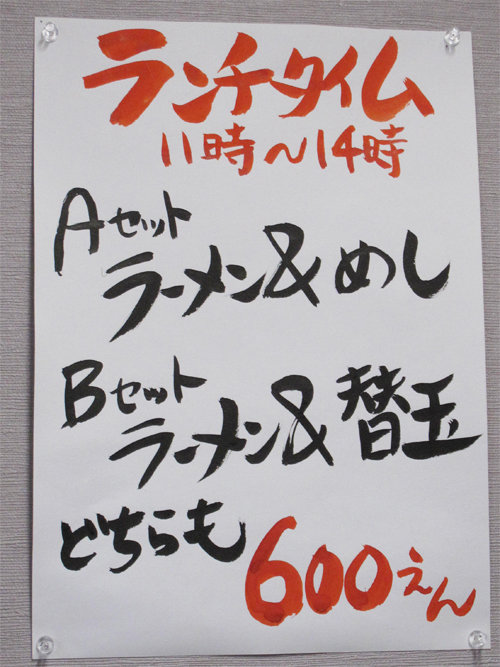 ランチタイム
11時～14時
Aセット
ラーメン&めし
Bセット
ラーメン&替玉
どちらも
600えん